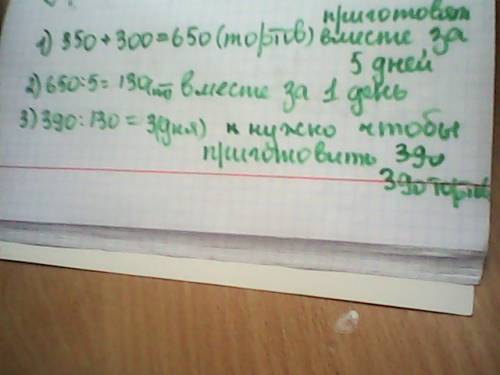 приготовят
1) 350 + 300 = 650 (тортов) вместе за
5 дней
2) 650:5 = 130(т) вместе за 1 день
3) 390:130 = 3(дня) нужно чтобы
приготовить 390
390 тортов